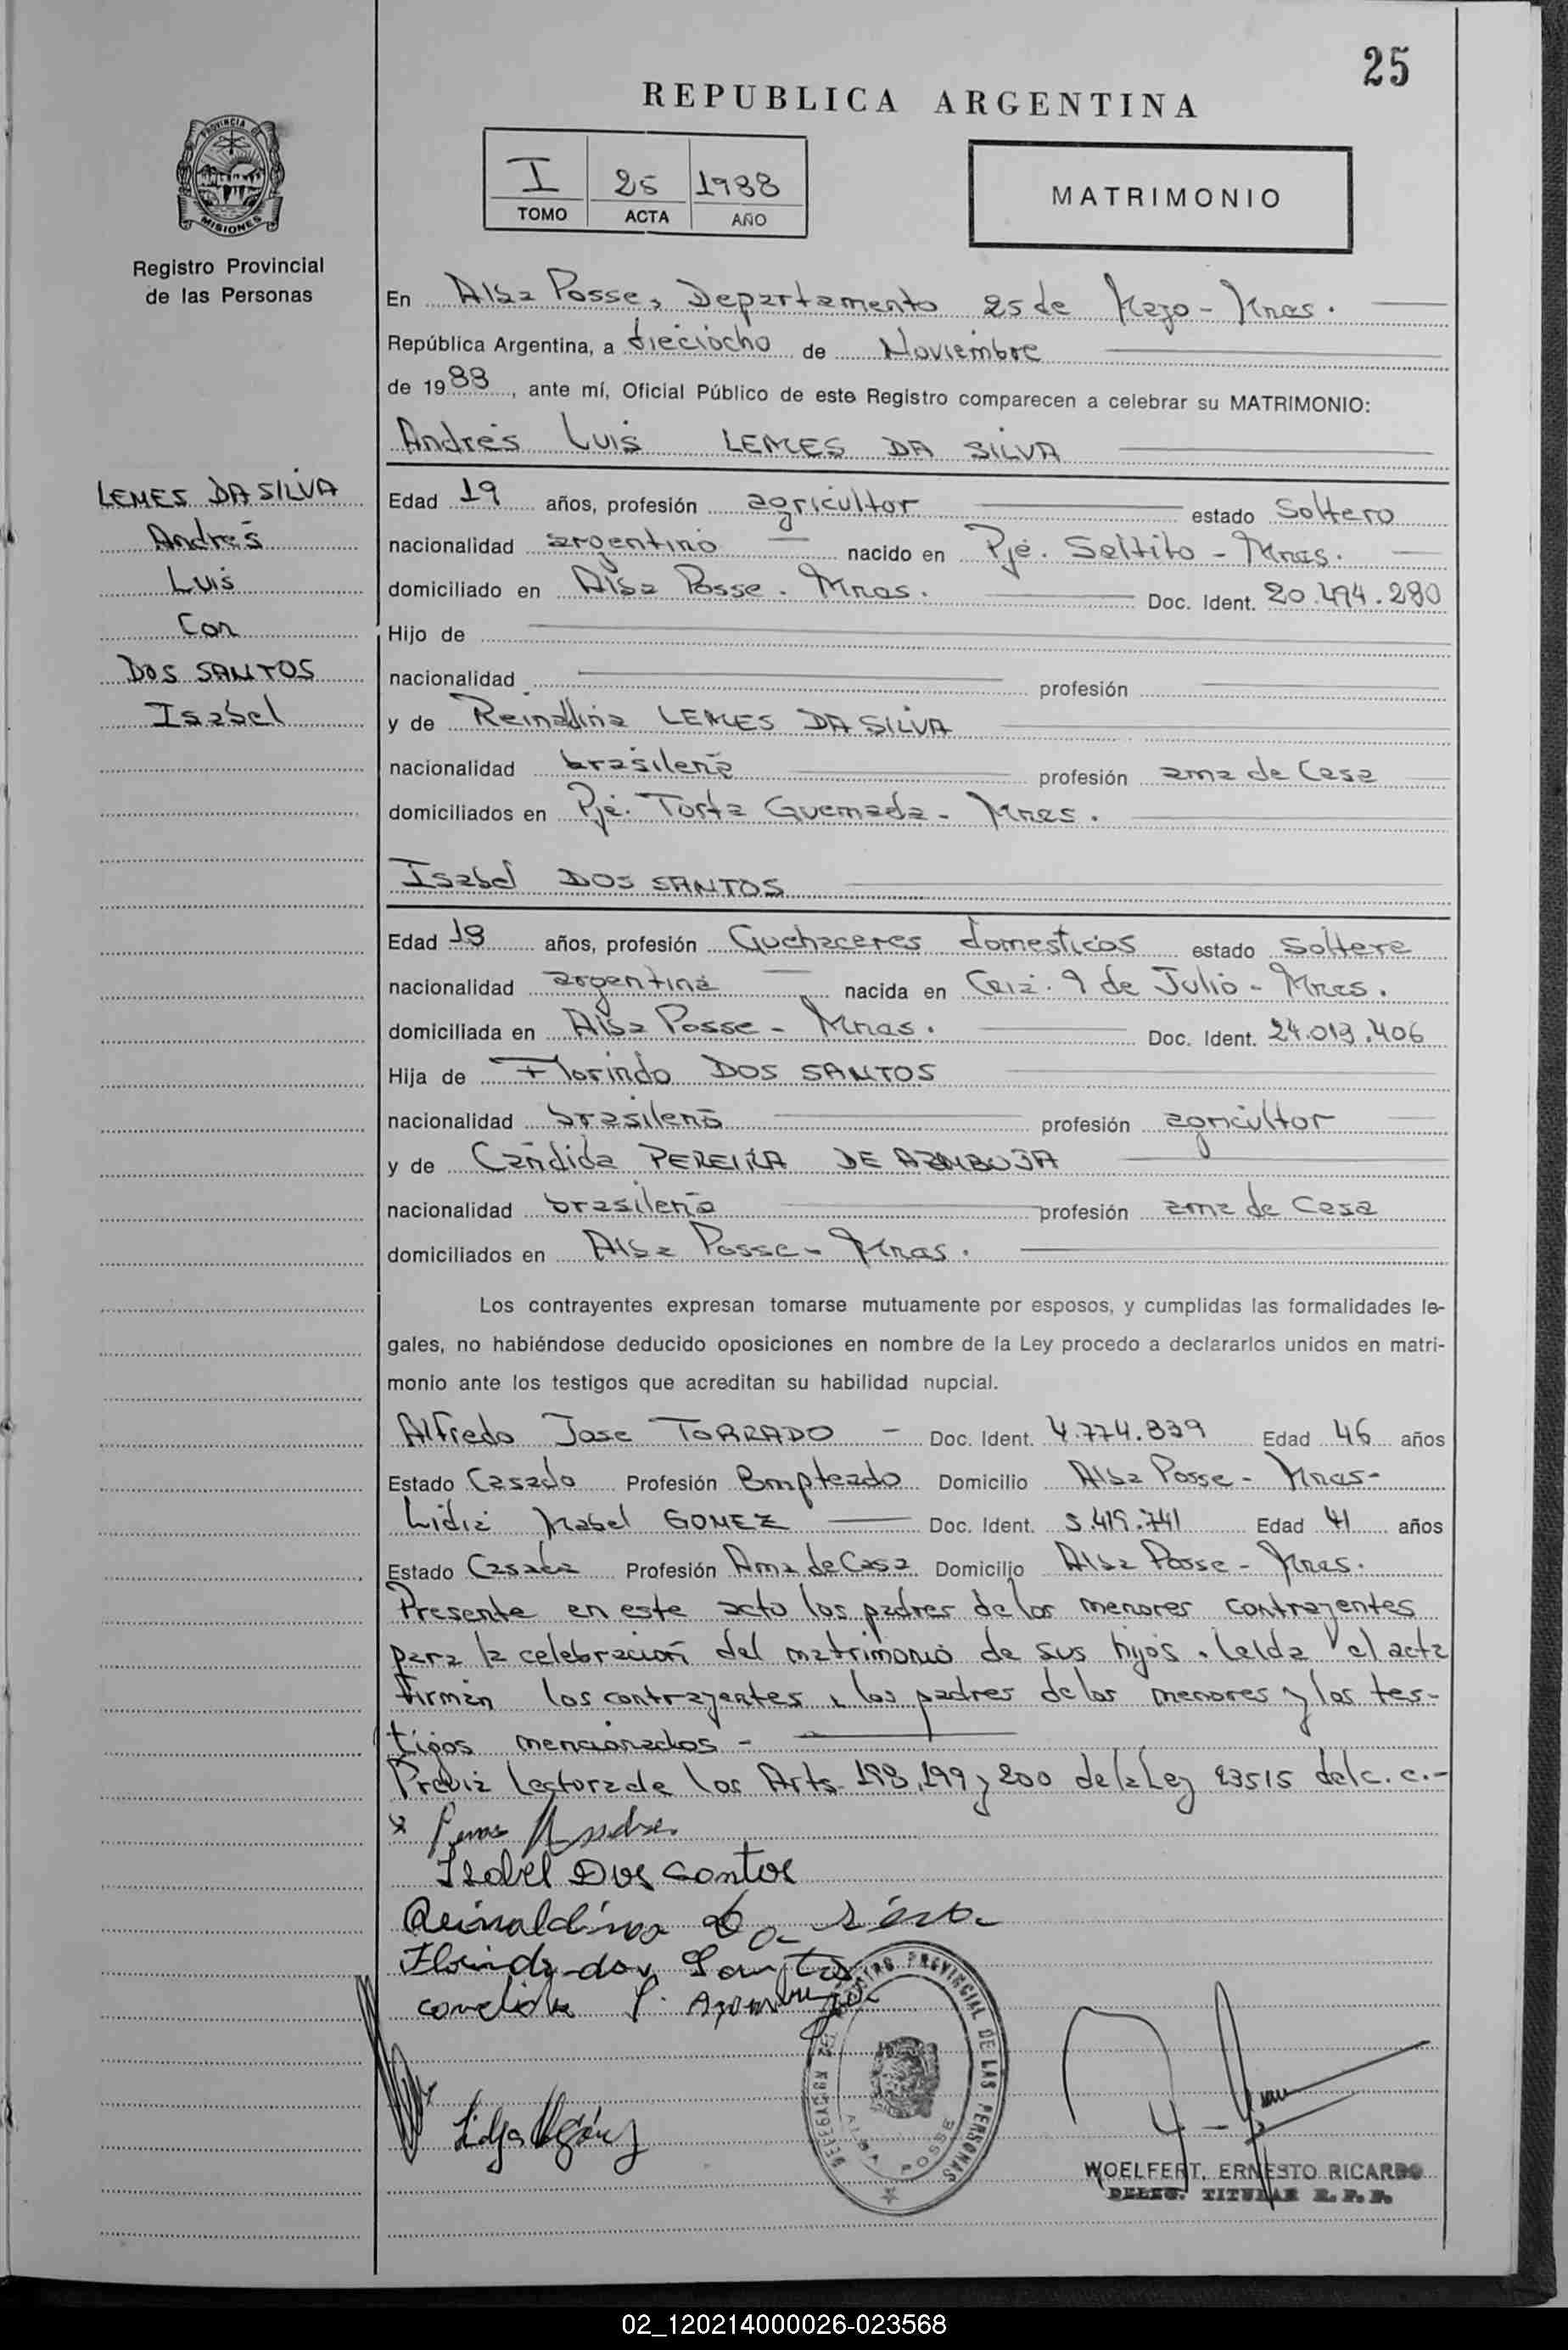 25
REPUBLICA ARGENTINA
I 25 1988
TOMO ACTA AÑO
MATRIMONIO
PROVINCIA DE
MISIONES
Registro Provincial
de las Personas
En Alba Posse, Departamento 25 de Mayo - Mnes.
República Argentina, a dieciocho de Noviembre
de 1988, ante mí, Oficial Público de este Registro comparecen a celebrar su MATRIMONIO:
Andrés Luis LEMES DA SILVA
LEMES DA SILVA
Andrés
Luis
Con
DOS SANTOS
Isabel
Edad 19 años, profesión agricultor estado Soltero
nacionalidad argentino nacido en Pje. Saltito - Mnes.
domiciliado en Alba Posse. Mnes. Doc. Ident. 20.494.280
Hijo de
nacionalidad profesión
y de Reinaldina LEMES DA SILVA
nacionalidad brasileña profesión ama de Casa
domiciliados en Pje. Torta Quemada - Mnes.
Isabel DOS SANTOS
Edad 18 años, profesión Quehaceres domesticos estado Soltera
nacionalidad argentina nacida en Cnia. 9 de Julio - Mnes.
domiciliada en Alba Posse - Mnes. Doc. Ident. 24.013.406
Hija de Florindo DOS SANTOS
nacionalidad brasileño profesión agricultor
y de Cándida PEREIRA DE AZAMBUJA
nacionalidad brasileña profesión ama de Casa
domiciliados en Alba Posse - Mnes.
Los contrayentes expresan tomarse mutuamente por esposos, y cumplidas las formalidades le-
gales, no habiéndose deducido oposiciones en nombre de la Ley procedo a declararlos unidos en matri-
monio ante los testigos que acreditan su habilidad nupcial.
Alfredo Jose TORRADO - Doc. Ident. 4.774.839 Edad 46 años
Estado Casado Profesión Empleado Domicilio Alba Posse - Mnes-
Lidia Mabel GOMEZ Doc. Ident. 5.419.741 Edad 41 años
Estado Casada Profesión Ama de Casa Domicilio Alba Posse - Mnes.
Presente en este acto los padres de los menores contrayentes
para la celebración del matrimonio de sus hijos. Leida el acta
firman los contrayentes, los padres de los menores y los tes-
tigos mencionados -
Previa lectura de los Arts. 198, 199 y 200 de la Ley 23515 del c. c.-
Isabel Dos Santos
Reinaldina da Silva
Florindo dos Santos
candida P. Azambuja
REGISTRO PROVINCIAL DE LAS PERSONAS
ALBA POSSE
WOELFERT, ERNESTO RICARDO
DELEG. TITULAR R. P. P.
02_120214000026-023568